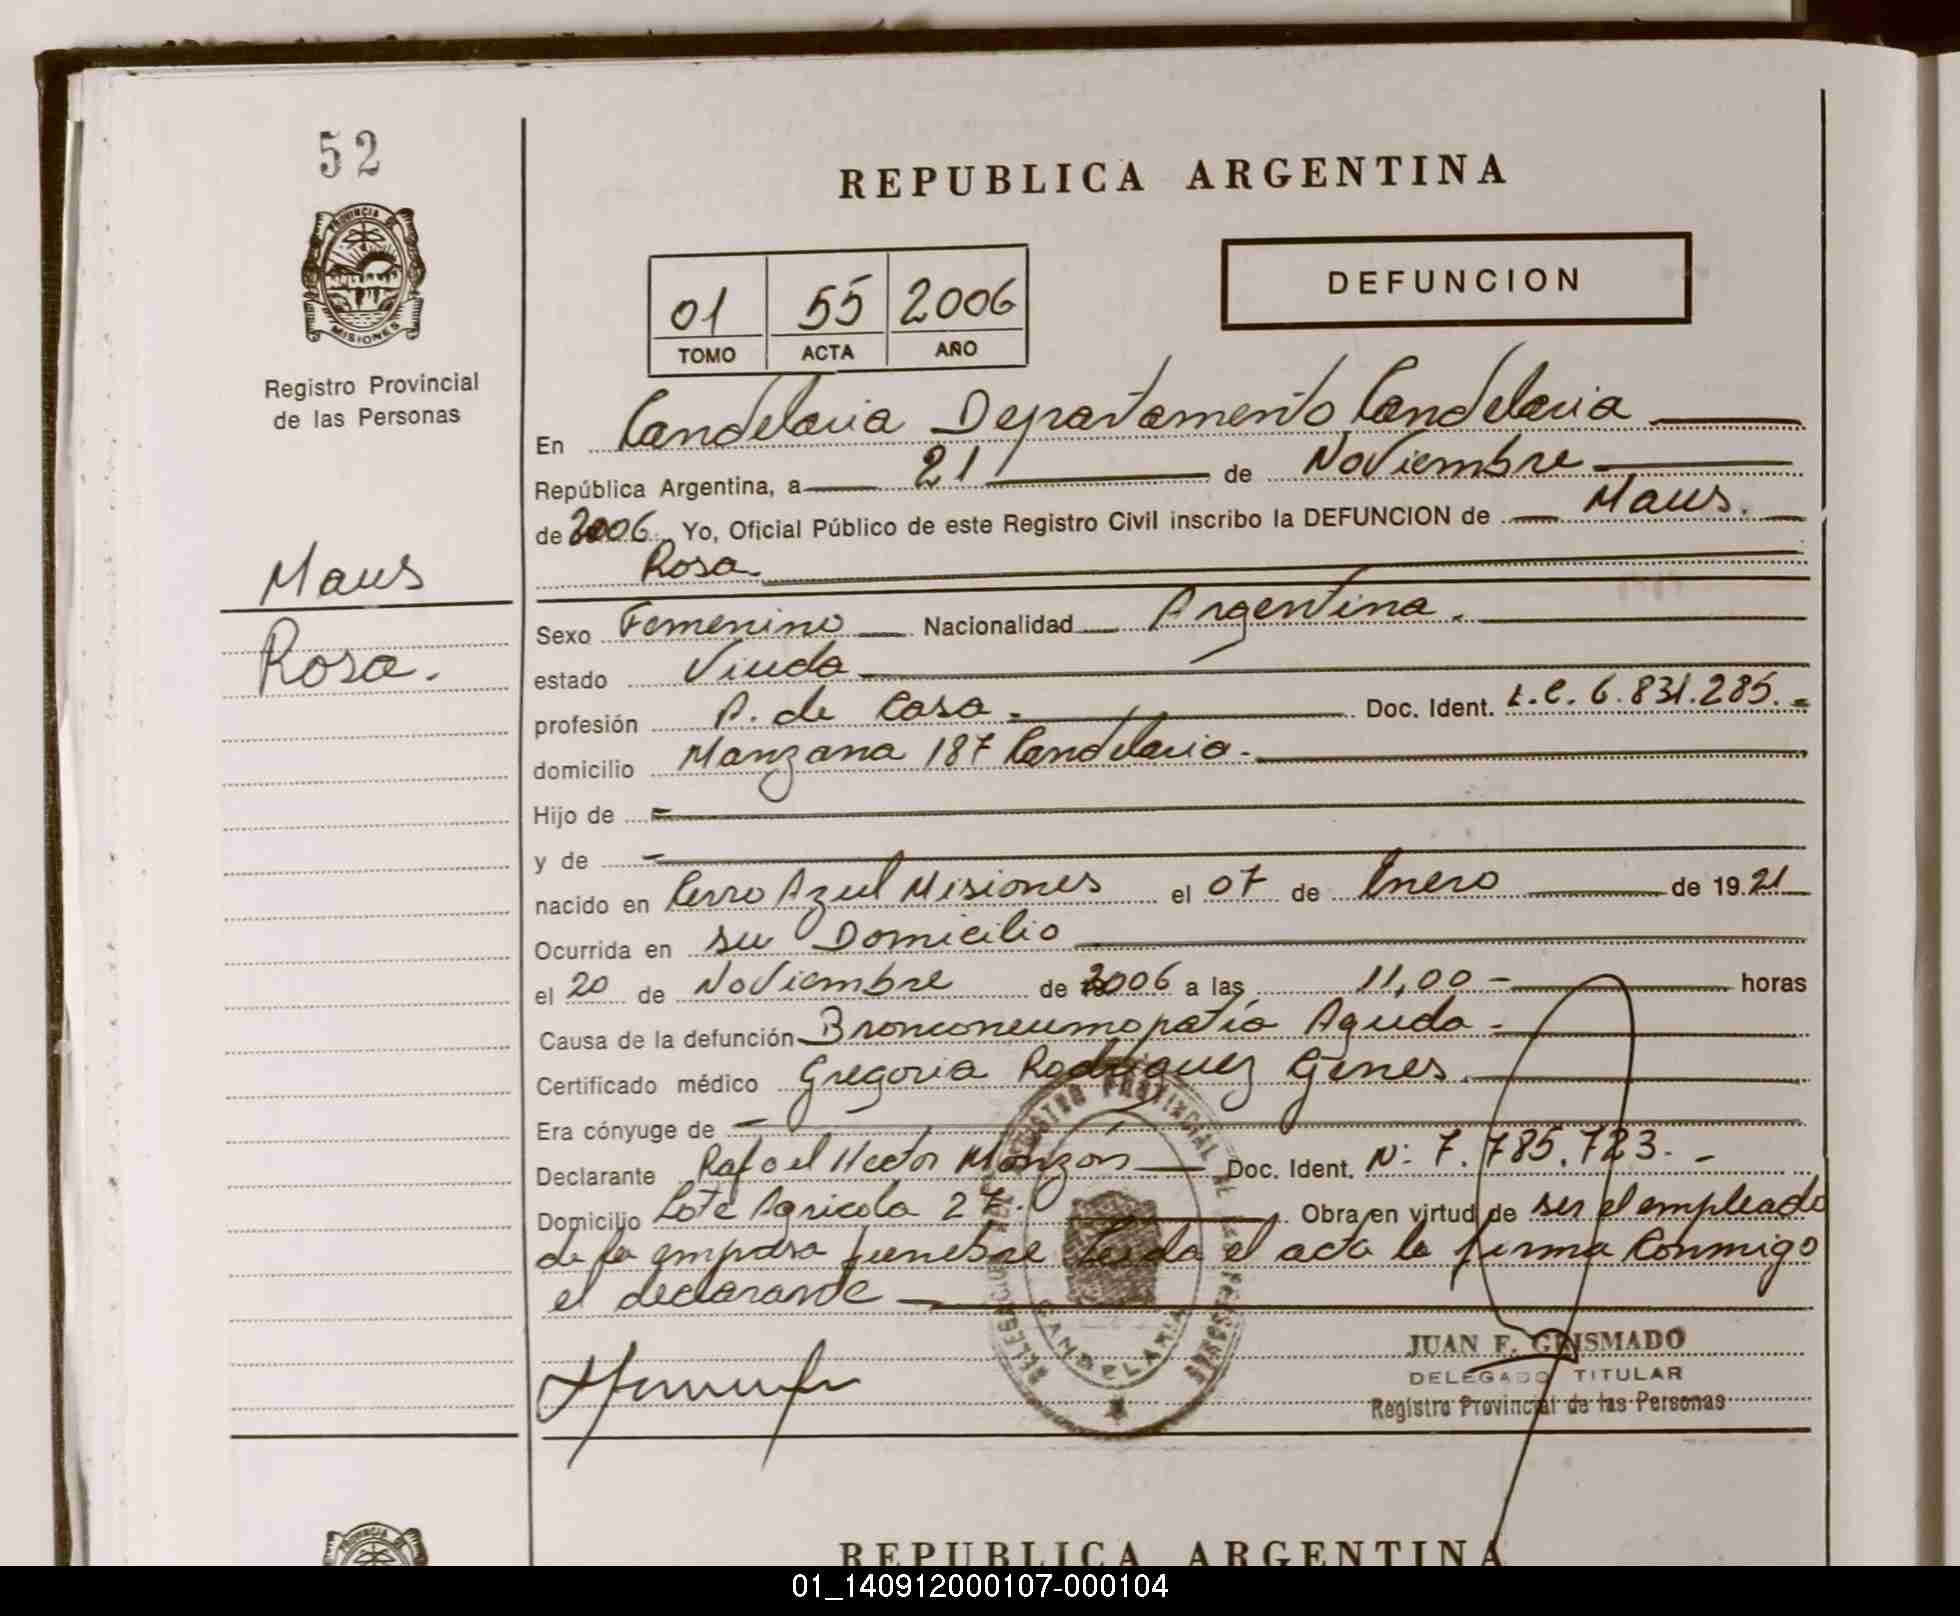 52
PROVINCIA DE
MISIONES
Registro Provincial
de las Personas
Maus
Rosa.
REPUBLICA ARGENTINA
01 55 2006
TOMO ACTA AÑO
DEFUNCION
En Candelaria Departamento Candelaria
República Argentina, a 21 de Noviembre
de 2006 Yo, Oficial Público de este Registro Civil inscribo la DEFUNCION de Maus.
Rosa.
Sexo Femenino Nacionalidad Argentina.
estado Viuda
profesión A. de Casa. Doc. Ident. L.C. 6.831.285.
domicilio Manzana 187 Candelaria.
Hijo de
y de
nacido en Cerro Azul Misiones el 07 de Enero de 19 21
Ocurrida en su Domicilio
el 20 de Noviembre de 2006 a las 11,00 horas
Causa de la defunción Bronconeumopatía Aguda
Certificado médico Gregoria Rodriguez Genes.
Era cónyuge de
Declarante Rafael Hector Monzón Doc. Ident. Nº 7.785.723.
Domicilio Lote Agricola 27. Obra en virtud de ser el empleado
de la empresa funebre Leida el acta la firma Conmigo
el declarante
REGISTRO PROVINCIAL DE LAS PERSONAS
CANDELARIA
JUAN F. GRISMADO
DELEGADO TITULAR
Registro Provincial de las Personas
PROVINCIA DE
REPUBLICA ARGENTINA
01_140912000107-000104